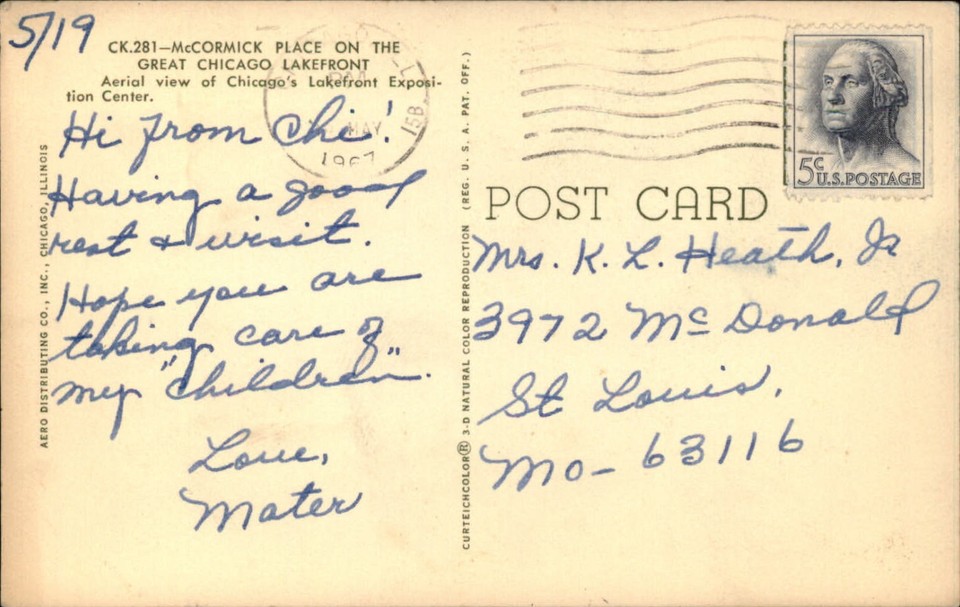 5/19
CK.281—McCORMICK PLACE ON THE
GREAT CHICAGO LAKEFRONT
Aerial view of Chicago's Lakefront Exposi-
tion Center.
Hi from Chi!
Having a good
rest & visit.
Hope you are
taking care of
my "children".
Love,
Mater
AERO DISTRIBUTING CO., INC., CHICAGO, ILLINOIS
CURTEICHCOLOR® 3-D NATURAL COLOR REPRODUCTION (REG. U. S. A. PAT. OFF.)
MAY
1967
POST CARD
5c U.S. POSTAGE
Mrs. K. L. Heath, Jr
3972 Mc Donald
St Louis,
Mo- 63116